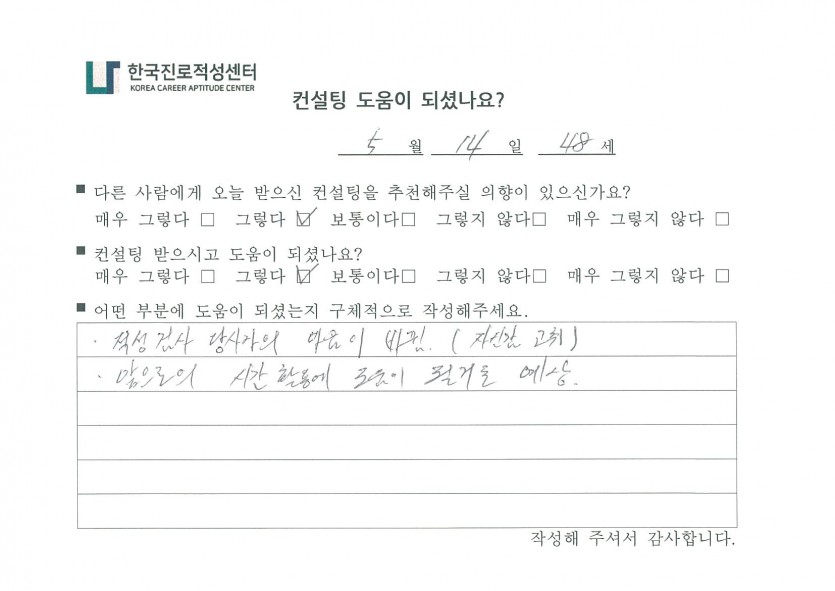 한국진로적성센터
KOREA CAREER APTITUDE CENTER
컨설팅 도움이 되셨나요?
5 월 14 일 48 세
■ 다른 사람에게 오늘 받으신 컨설팅을 추천해주실 의향이 있으신가요?
매우 그렇다 □ 그렇다 ☑ 보통이다□ 그렇지 않다□ 매우 그렇지 않다 □
■ 컨설팅 받으시고 도움이 되셨나요?
매우 그렇다 □ 그렇다 ☑ 보통이다□ 그렇지 않다□ 매우 그렇지 않다 □
■ 어떤 부분에 도움이 되셨는지 구체적으로 작성해주세요.
· 적성검사 당사자의 마음이 바뀜. (자신감 고취)
· 앞으로의 시간 활용에 도움이 될거로 예상.
작성해 주셔서 감사합니다.